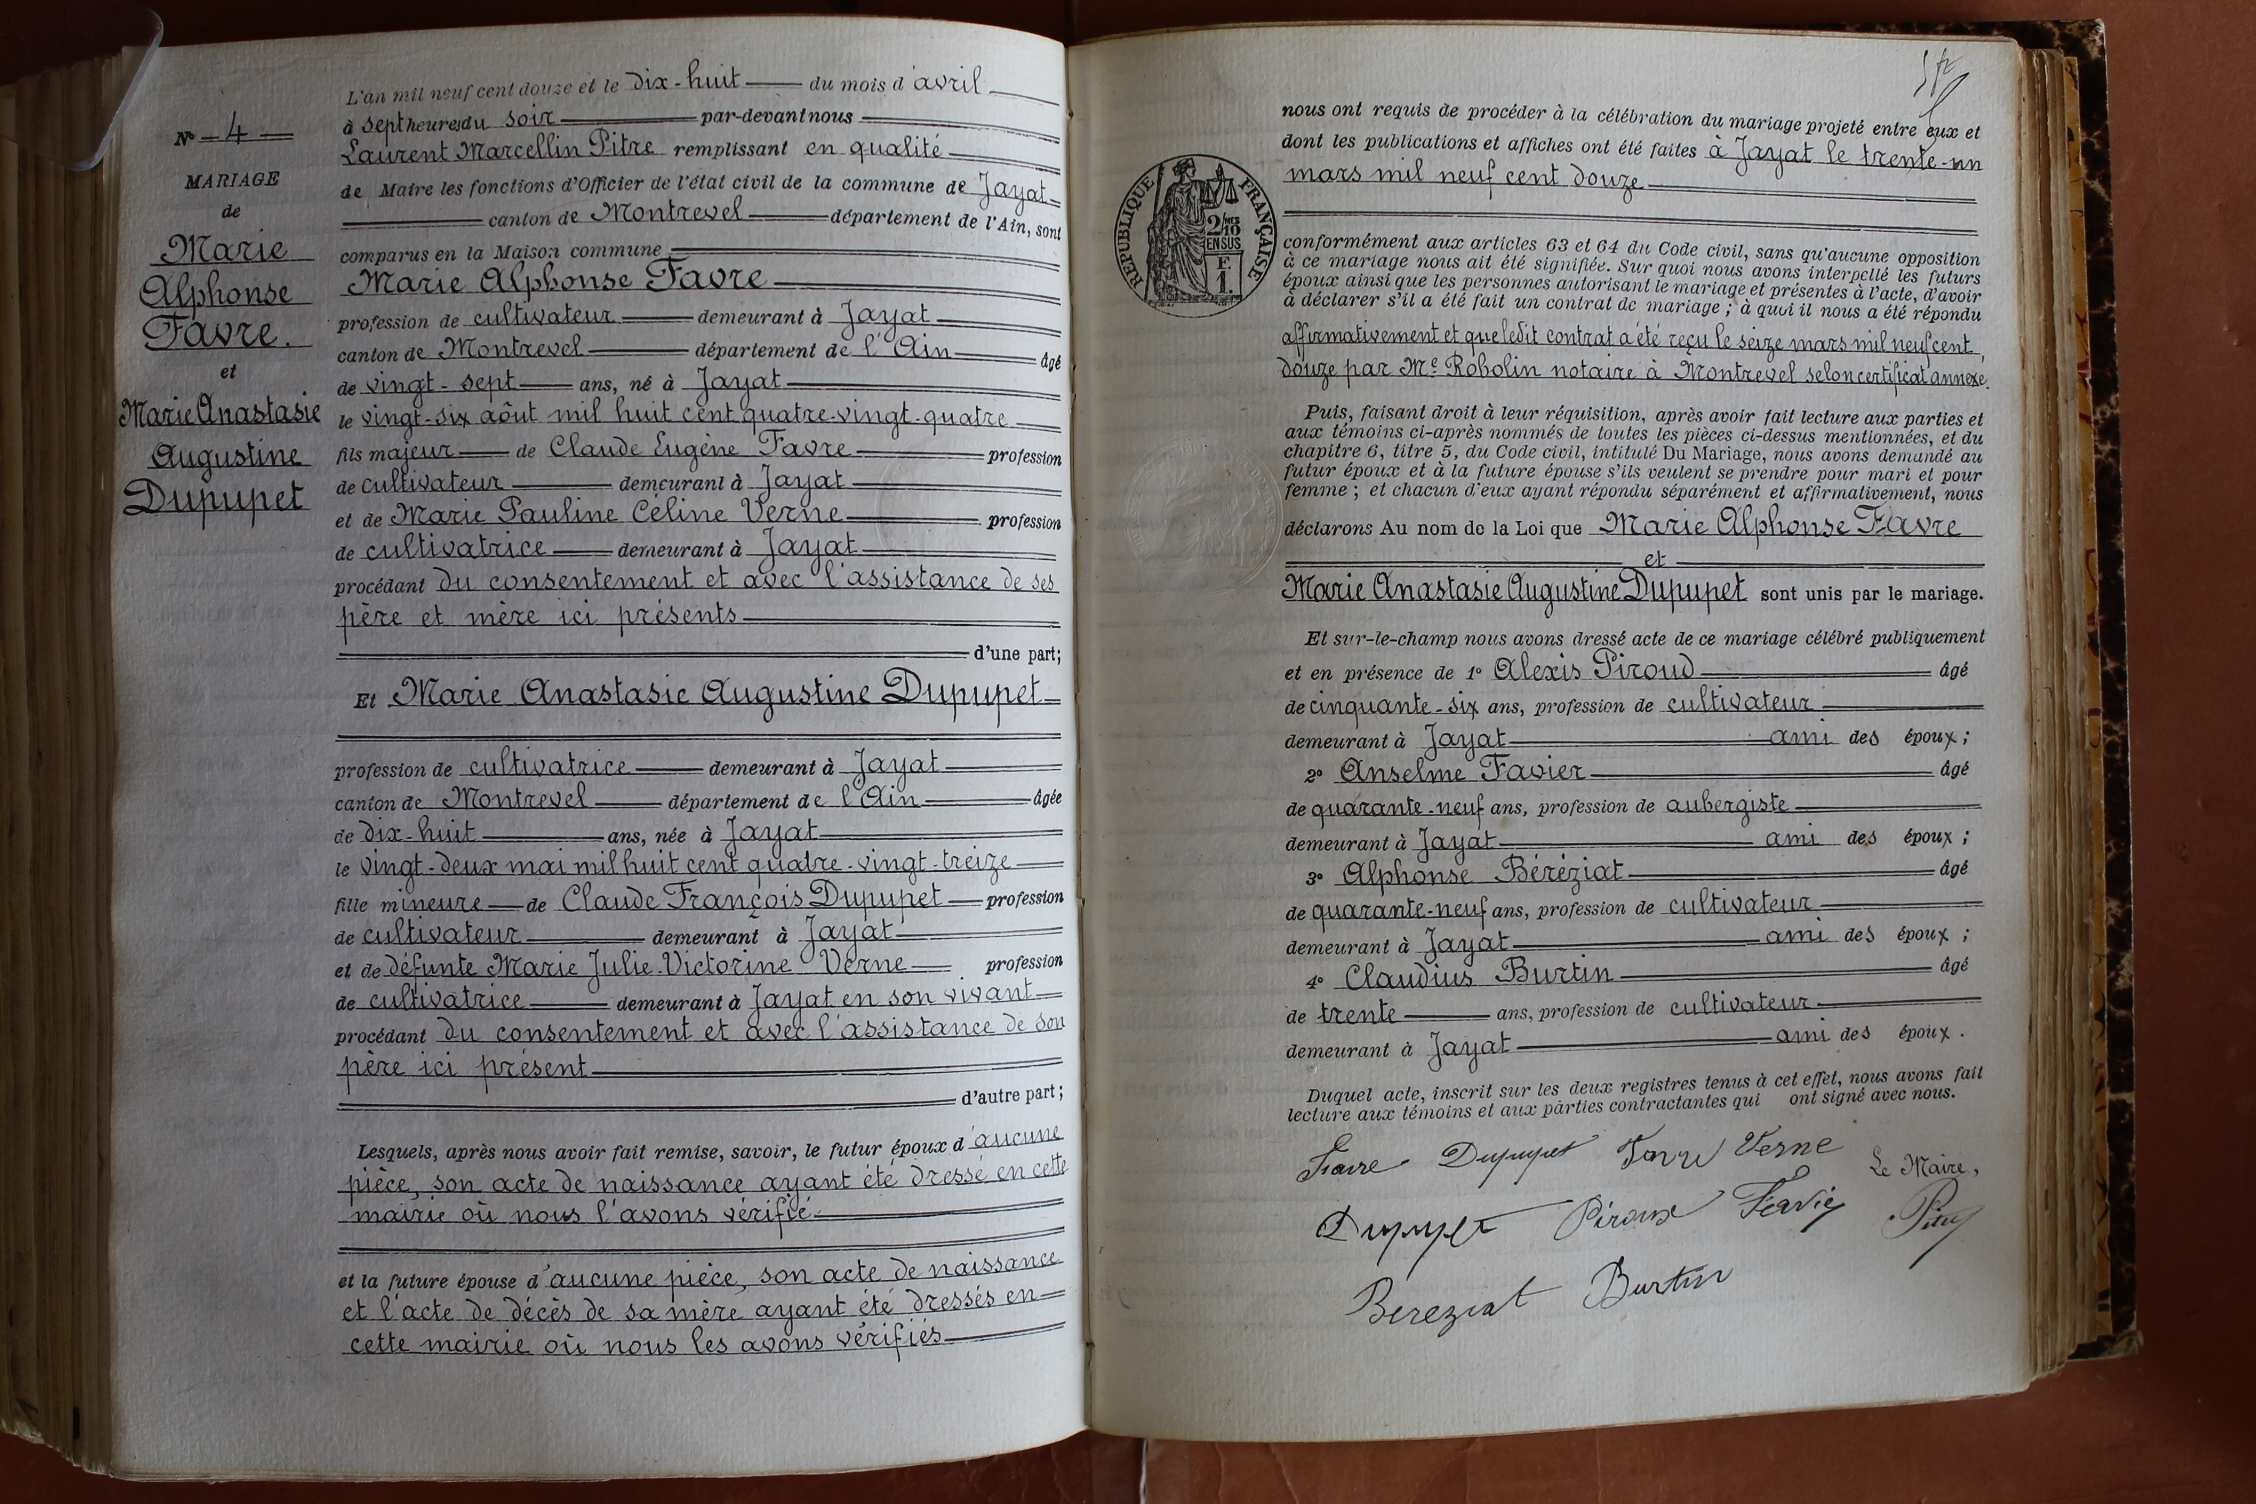 N° 4
MARIAGE
de
Marie
Alphonse
Favre.
et
Marie Anastasie
Augustine
Dupupet
L'an mil neuf cent douze et le dix-huit du mois d'avril
à sept heures du soir par-devant nous
Laurent Marcellin Pitre remplissant en qualité
de Maire les fonctions d'Officier de l'état civil de la commune de Jayat
canton de Montrevel département de l'Ain, sont
comparus en la Maison commune
Marie Alphonse Favre
profession de cultivateur demeurant à Jayat
canton de Montrevel département de l'Ain âgé
de vingt-sept ans, né à Jayat
le vingt-six août mil huit cent quatre-vingt-quatre
fils majeur de Claude Eugène Favre profession
de cultivateur demeurant à Jayat
et de Marie Pauline Céline Verne profession
de cultivatrice demeurant à Jayat
procédant du consentement et avec l'assistance de ses
père et mère ici présents
d'une part;
Et Marie Anastasie Augustine Dupupet
profession de cultivatrice demeurant à Jayat
canton de Montrevel département de l'Ain âgée
de dix-huit ans, née à Jayat
le vingt-deux mai mil huit cent quatre-vingt-treize
fille mineure de Claude François Dupupet profession
de cultivateur demeurant à Jayat
et de défunte Marie Julie Victorine Verne profession
de cultivatrice demeurant à Jayat en son vivant
procédant du consentement et avec l'assistance de son
père ici présent
d'autre part;
Lesquels, après nous avoir fait remise, savoir, le futur époux d'aucune
pièce, son acte de naissance ayant été dressé en cette
mairie où nous l'avons vérifié
et la future épouse d'aucune pièce, son acte de naissance
et l'acte de décès de sa mère ayant été dressés en
cette mairie où nous les avons vérifiés
nous ont requis de procéder à la célébration du mariage projeté entre eux et
dont les publications et affiches ont été faites à Jayat le trente-un
mars mil neuf cent douze
RÉPUBLIQUE FRANÇAISE
2/10
EN SUS
F.
1.
conformément aux articles 63 et 64 du Code civil, sans qu'aucune opposition
à ce mariage nous ait été signifiée. Sur quoi nous avons interpellé les futurs
époux ainsi que les personnes autorisant le mariage et présentes à l'acte, d'avoir
à déclarer s'il a été fait un contrat de mariage ; à quoi il nous a été répondu
affirmativement et que ledit contrat a été reçu le seize mars mil neuf cent
douze par Me Robolin notaire à Montrevel selon certificat annexe.
Puis, faisant droit à leur réquisition, après avoir fait lecture aux parties et
aux témoins ci-après nommés de toutes les pièces ci-dessus mentionnées, et du
chapitre 6, titre 5, du Code civil, intitulé Du Mariage, nous avons demandé au
futur époux et à la future épouse s'ils veulent se prendre pour mari et pour
femme ; et chacun d'eux ayant répondu séparément et affirmativement, nous
déclarons Au nom de la Loi que Marie Alphonse Favre
et
Marie Anastasie Augustine Dupupet sont unis par le mariage.
Et sur-le-champ nous avons dressé acte de ce mariage célébré publiquement
et en présence de 1° Alexis Piroud âgé
de cinquante-six ans, profession de cultivateur
demeurant à Jayat ami des époux ;
2° Anselme Favier âgé
de quarante-neuf ans, profession de aubergiste
demeurant à Jayat ami des époux ;
3° Alphonse Béréziat âgé
de quarante-neuf ans, profession de cultivateur
demeurant à Jayat ami des époux ;
4° Claudius Burtin âgé
de trente ans, profession de cultivateur
demeurant à Jayat ami des époux.
Duquel acte, inscrit sur les deux registres tenus à cet effet, nous avons fait
lecture aux témoins et aux parties contractantes qui ont signé avec nous.
Favre Dupupet Favre Verne
Le Maire,
Dupupet Piroud Favier Pitre
Bereziat Burtin